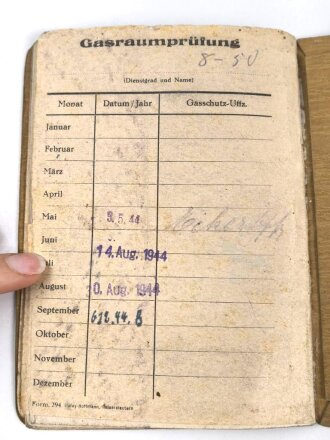 Gasraumprüfung
8-50
(Dienstgrad und Name)
Monat Datum/Jahr Gasschutz-Uffz.
Januar
Februar
März
April
Mai 3.5.44
Juni
Juli 14. Aug. 1944
August 0. Aug. 1944
September
Oktober
November
Dezember
Form. 294